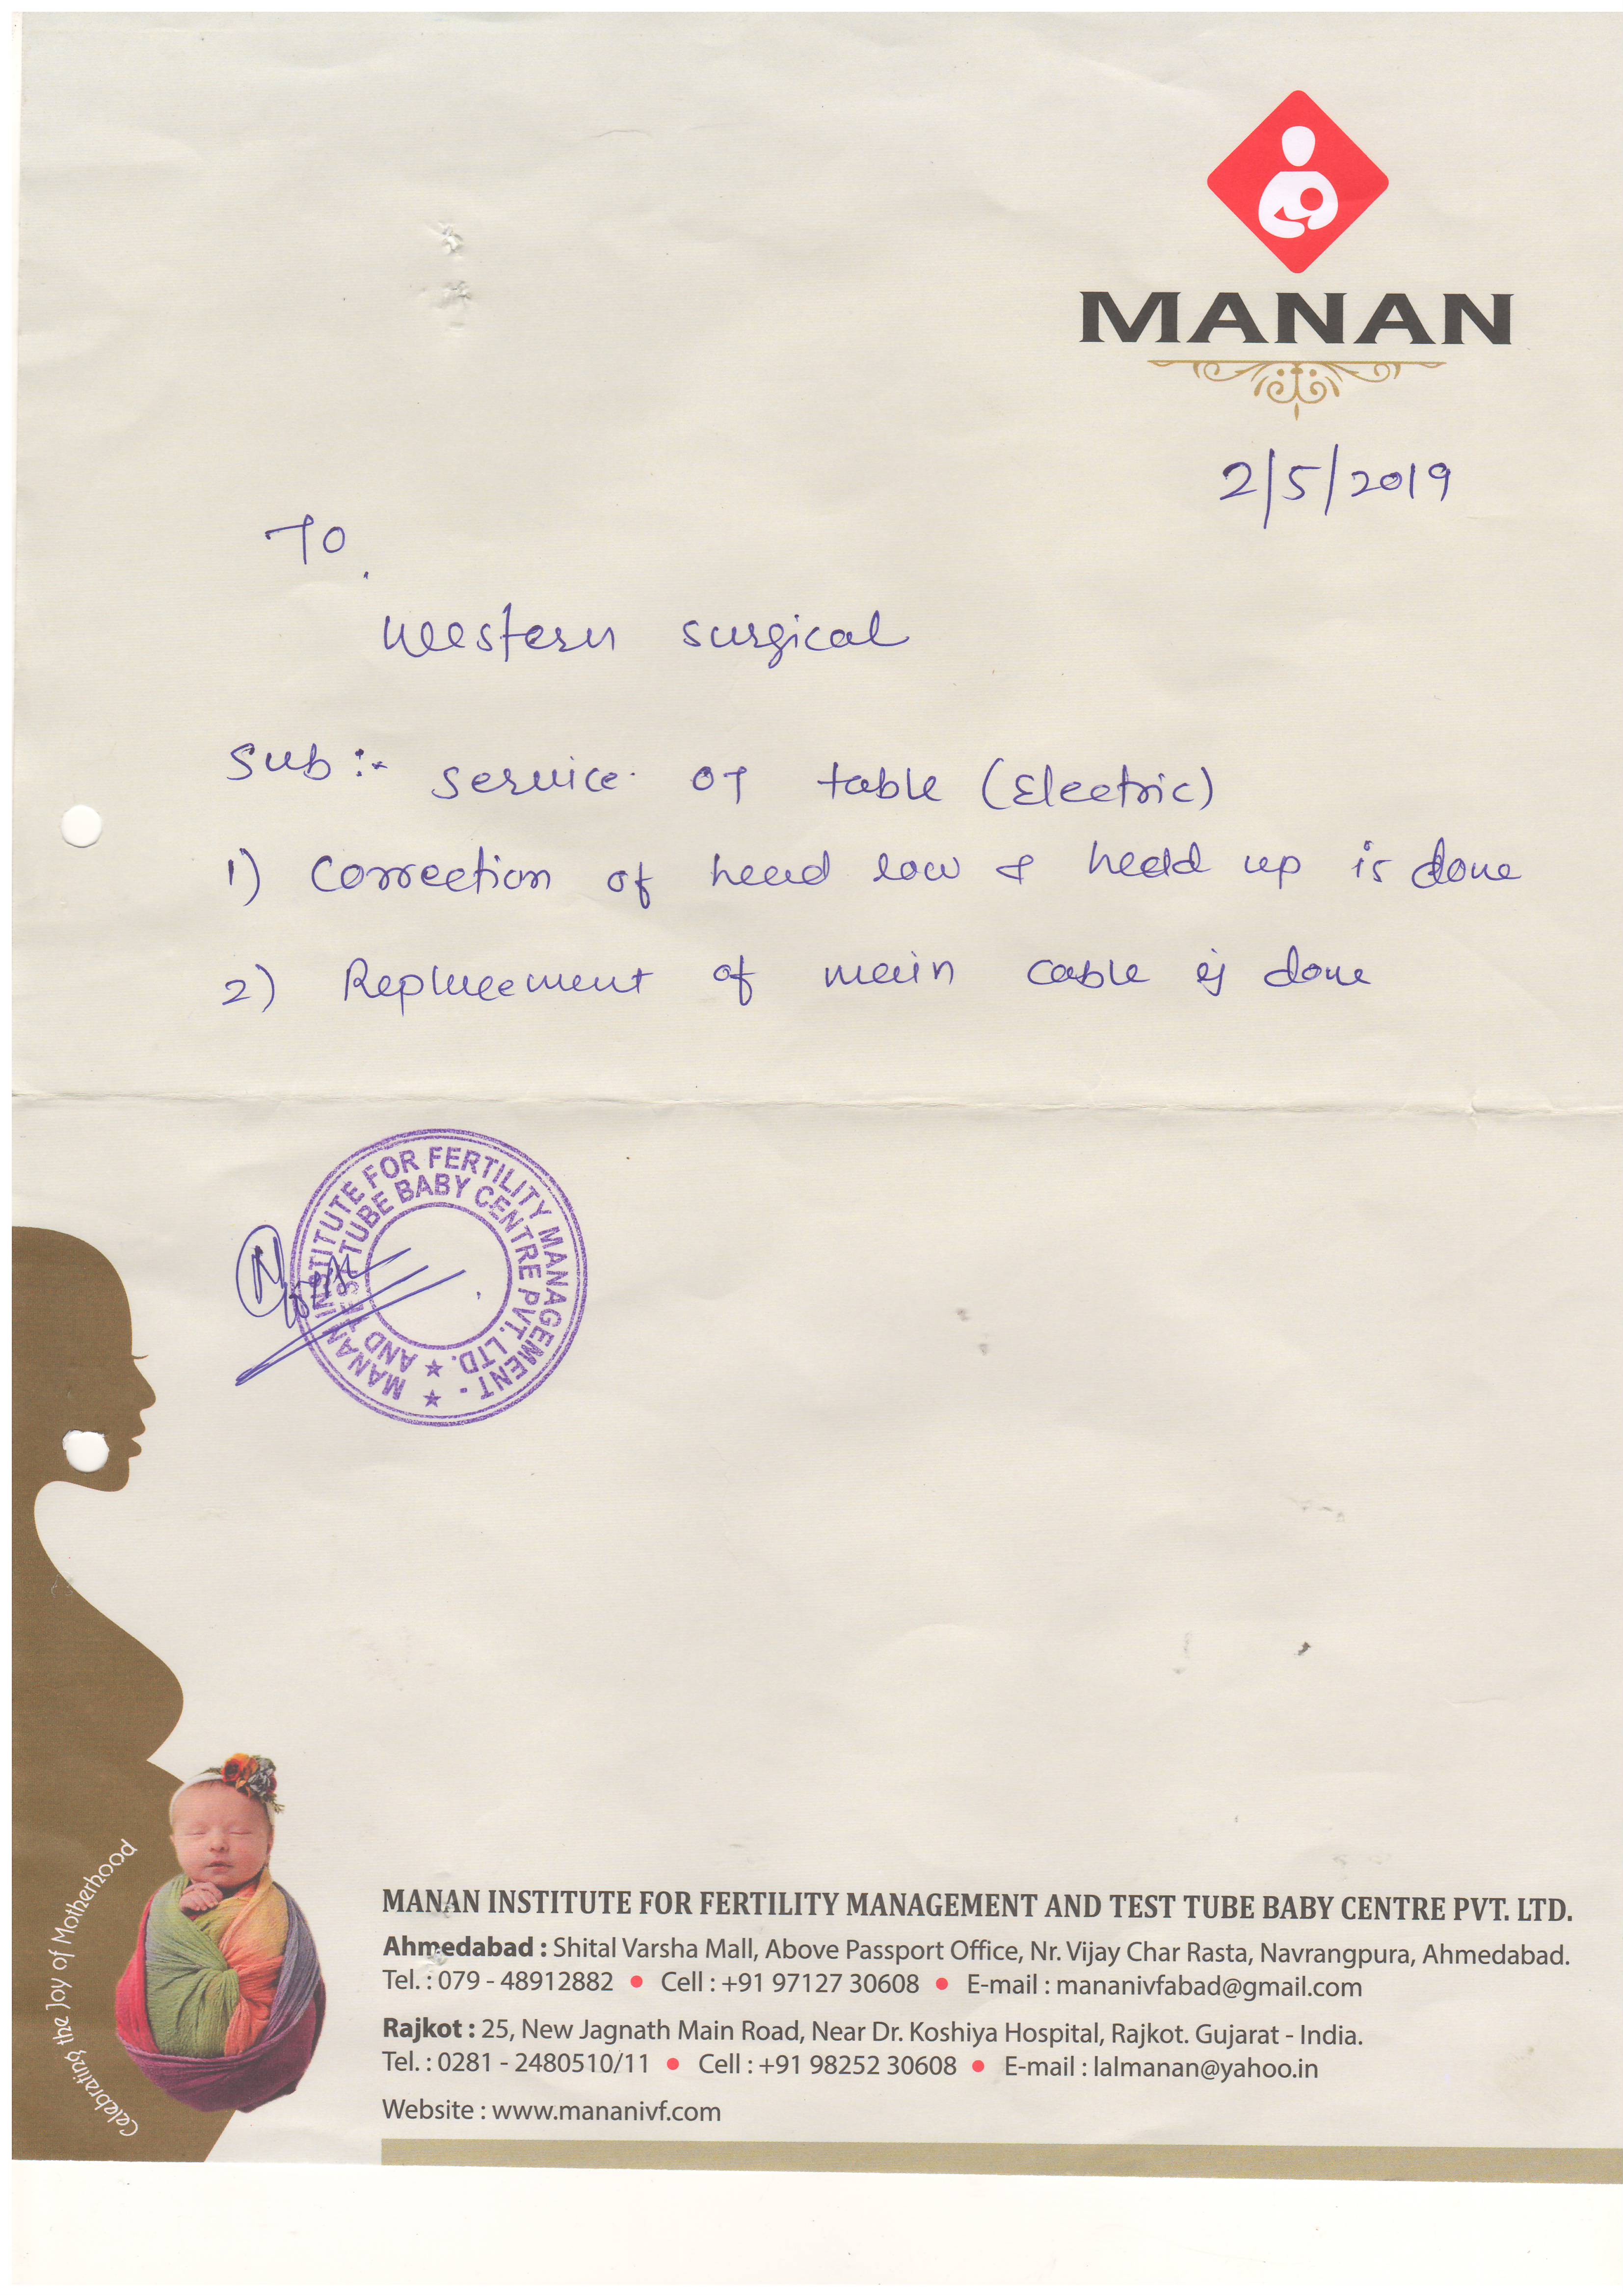 MANAN
2/5/2019
TO,
Western surgical
Sub:- service of table (Electric)
1) Correction of head low & head up is done
2) Replacement of main cable is done
MANAN INSTITUTE FOR FERTILITY MANAGEMENT -
AND TEST TUBE BABY CENTRE PVT. LTD.
Celebrating the Joy of Motherhood
MANAN INSTITUTE FOR FERTILITY MANAGEMENT AND TEST TUBE BABY CENTRE PVT. LTD.
Ahmedabad : Shital Varsha Mall, Above Passport Office, Nr. Vijay Char Rasta, Navrangpura, Ahmedabad.
Tel. : 079 - 48912882 • Cell : +91 97127 30608 • E-mail : mananivfabad@gmail.com
Rajkot : 25, New Jagnath Main Road, Near Dr. Koshiya Hospital, Rajkot. Gujarat - India.
Tel. : 0281 - 2480510/11 • Cell : +91 98252 30608 • E-mail : lalmanan@yahoo.in
Website : www.mananivf.com